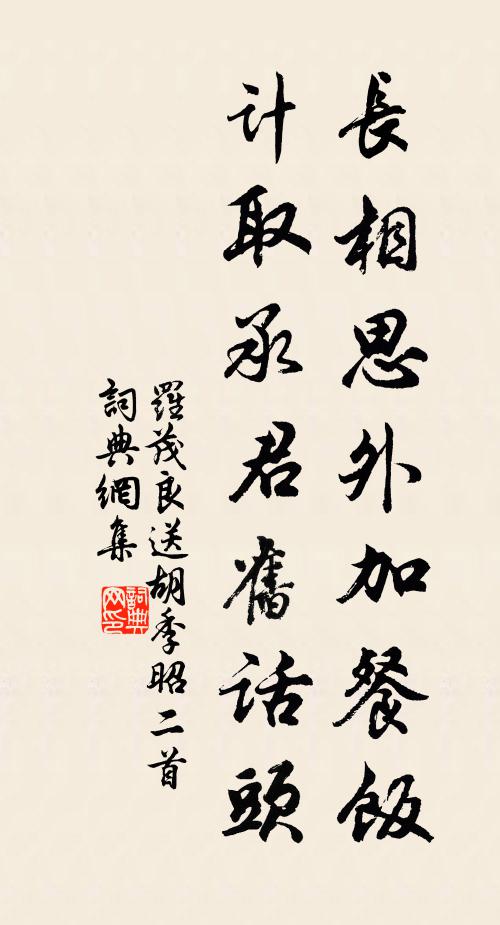 長相思外加餐飯
计取承君舊话頭
羅茂良送胡季昭二首
詞典網集
詞典
网印